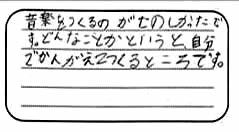 音楽をつくるのがたのしかったで
す。どんなことかというと、自分
でかんがえてつくるところです。